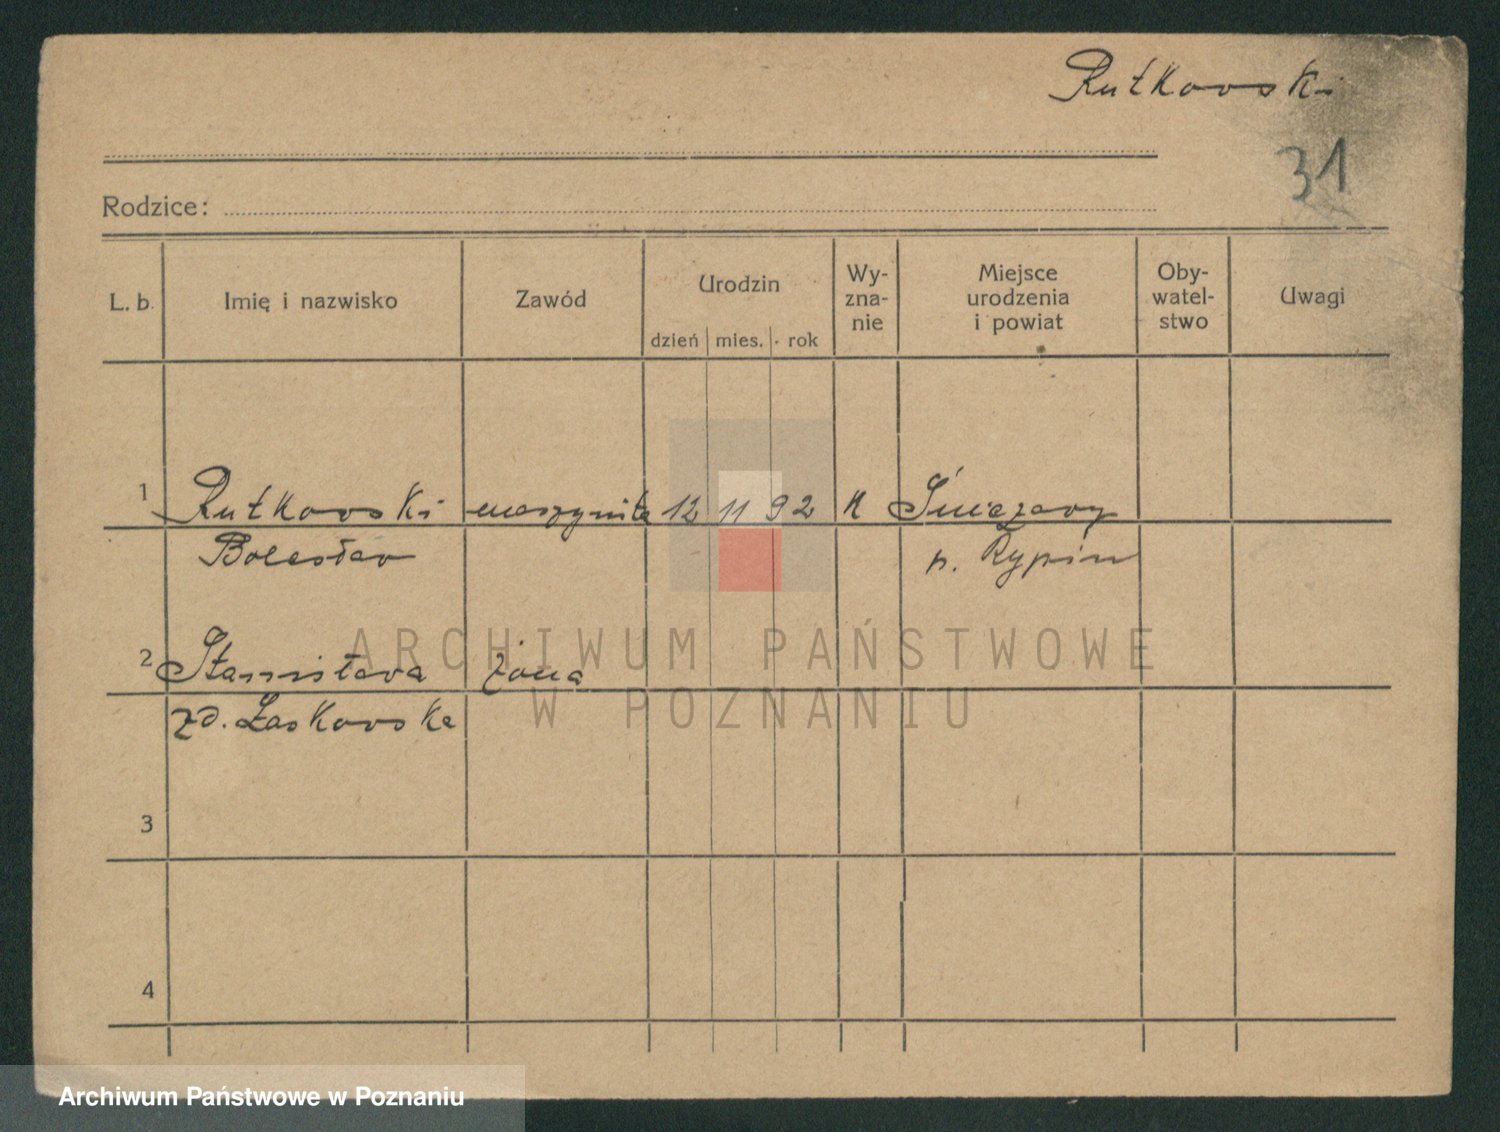 Rutkowski
31
Rodzice:
L. b. Imię i nazwisko Zawód Urodzin Wy-zna-nie Miejsce urodzenia i powiat Oby-watel-stwo Uwagi
dzień mies. rok
1 Rutkowski maszynista 12 11 92 K
Bolesław p. Rypin
2 Stanisława żona
zd. Laskowska
3
4
ARCHIWUM PAŃSTWOWE
W POZNANIU
Archiwum Państwowe w Poznaniu